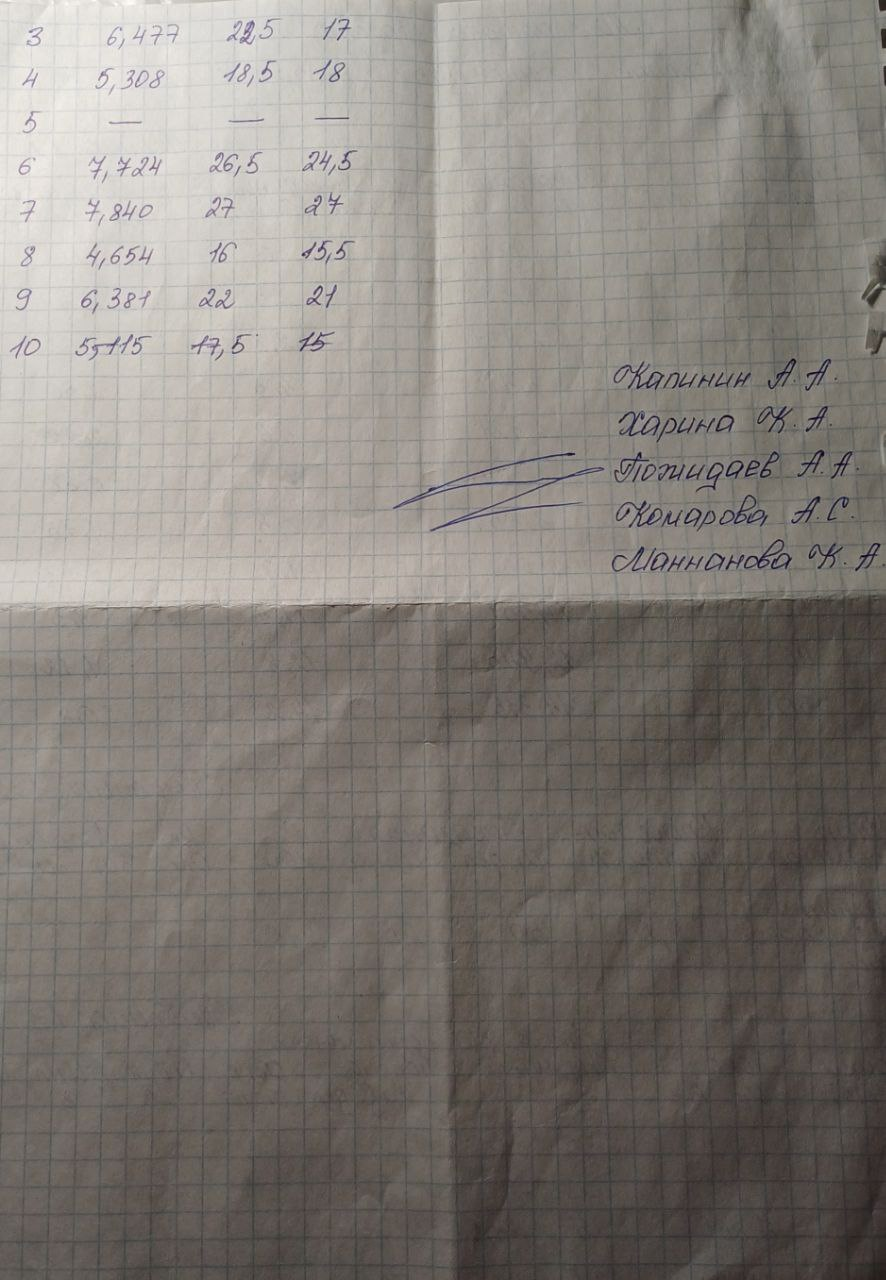 3 6,477 22,5 17
4 5,308 18,5 18
5 — — —
6 7,724 26,5 24,5
7 7,840 27 27
8 4,654 16 15,5
9 6,381 22 21
10 5,115 17,5 15
Капинин А. А.
Харина К. А.
Пожидаев А. А.
Комарова А. С.
Маннанова К. А.